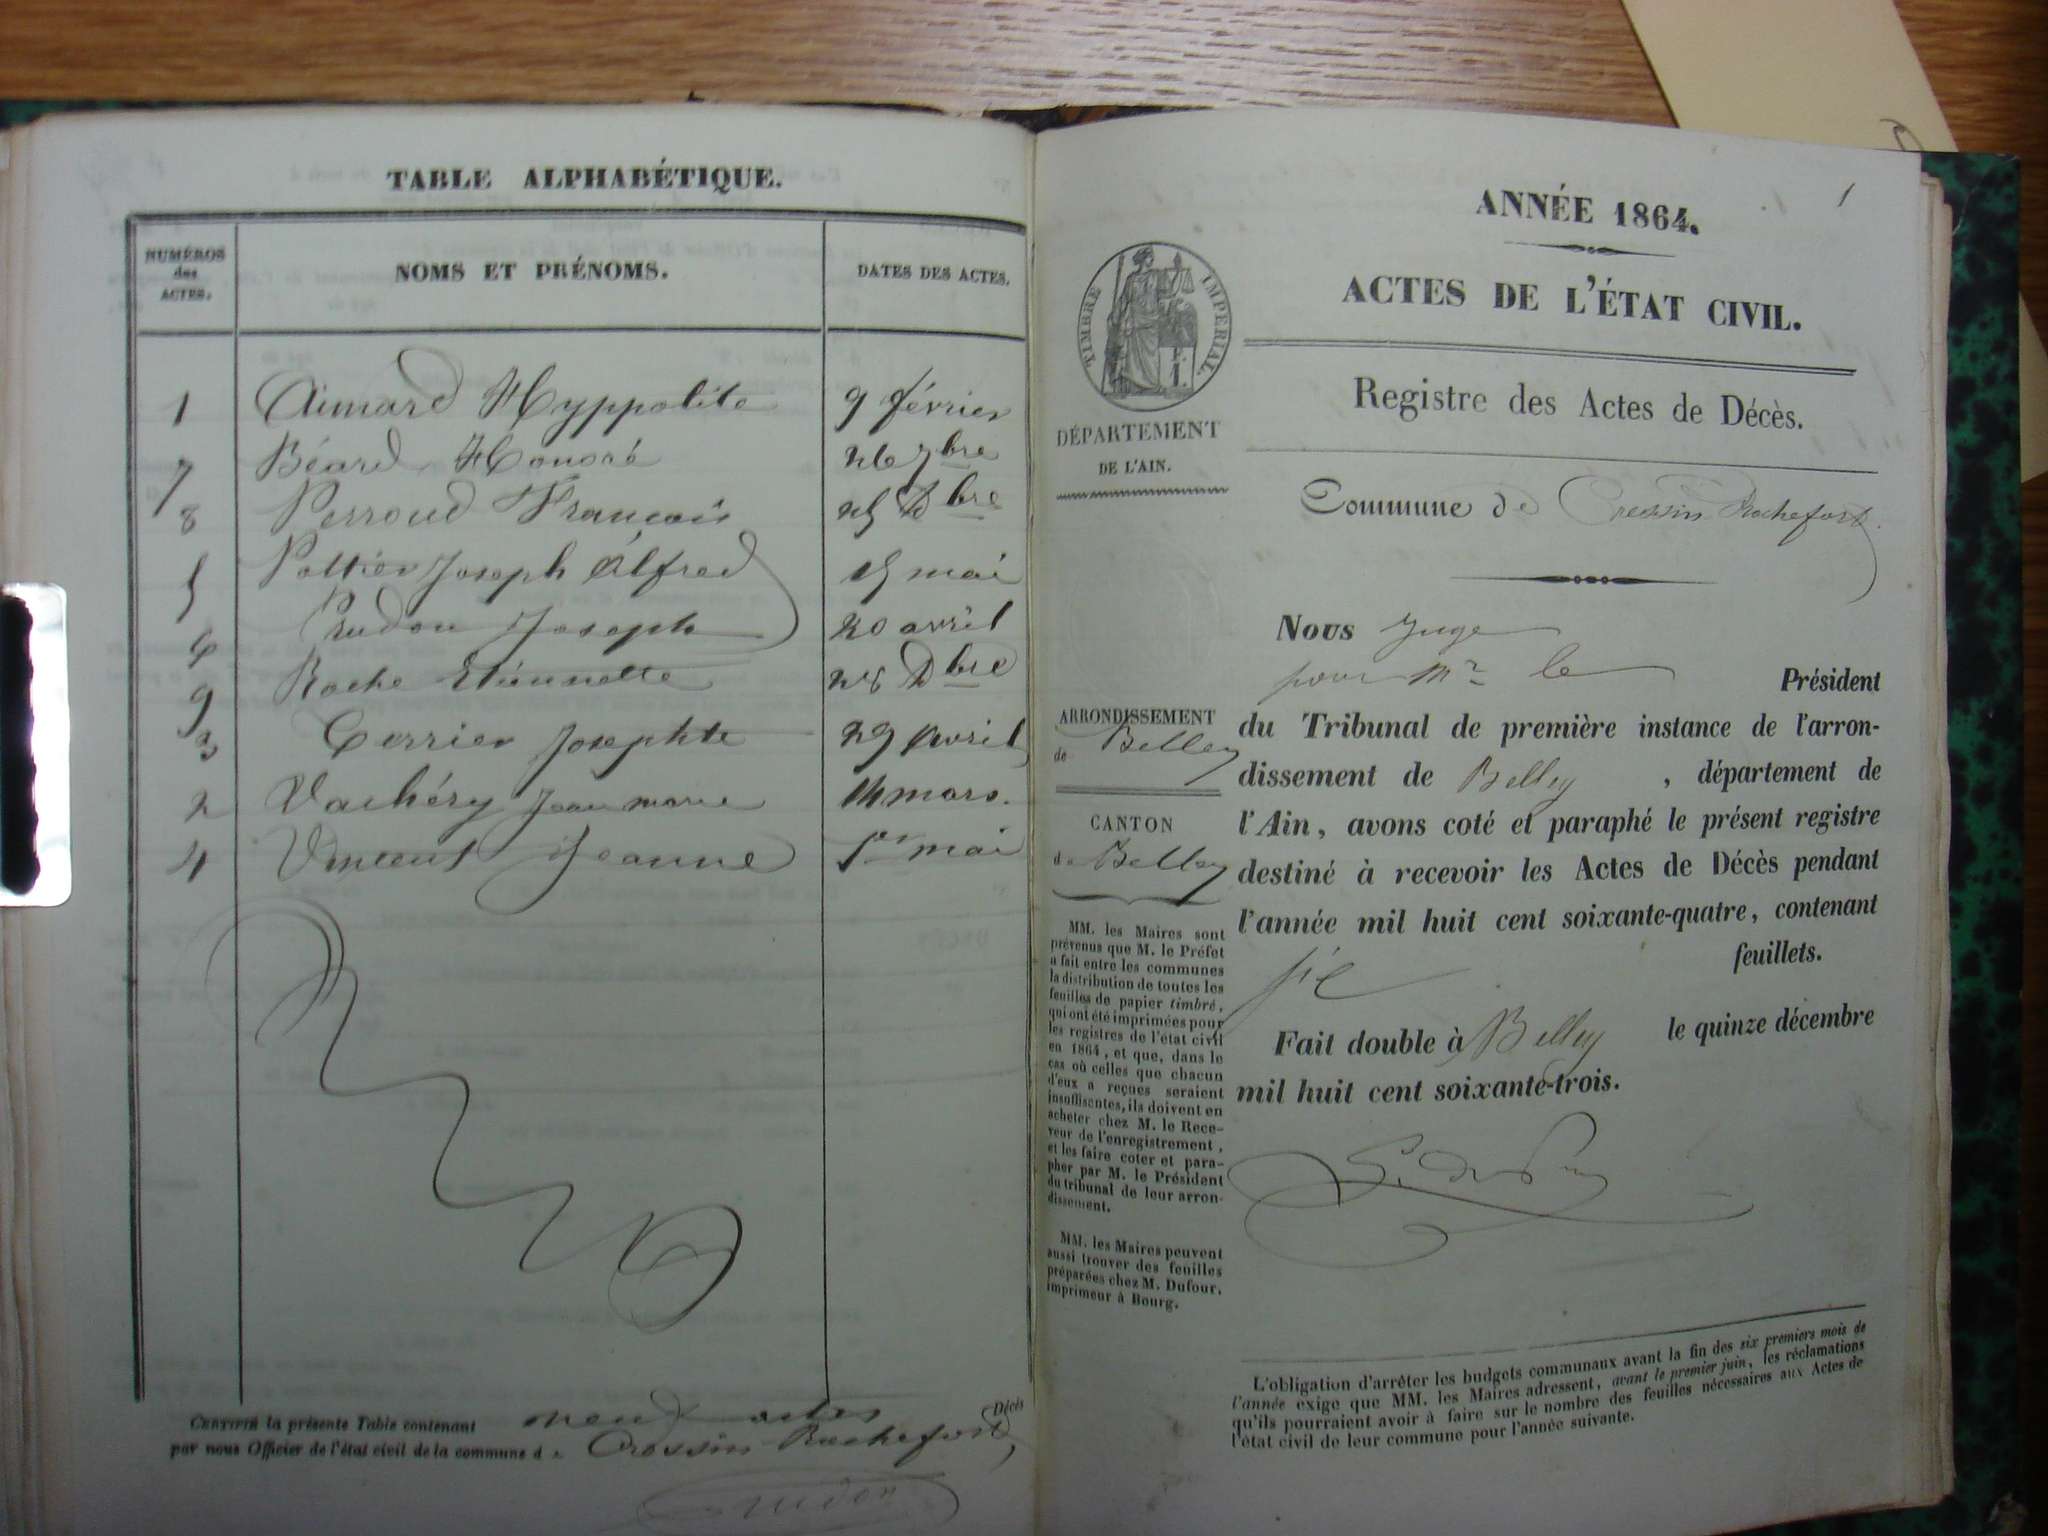 TABLE ALPHABÉTIQUE.
NUMÉROS
des
ACTES.
NOMS ET PRÉNOMS.
DATES DES ACTES.
1 Aimard Hyppolite 9 février
7 Béard Honoré 26 7bre
8 Perroud Francois 25 Dbre
5 Poltier Joseph Alfred 15 mai
6 Prudon Joseph 20 avril
9 Roche Etiennette 28 Dbre
3 Terrier Josephte 29 Avril
2 Vachéry Jean marie 14 mars.
4 Vincent Jeanne 1er mai
CERTIFIÉ la présente Table contenant neuf actes Décès
par nous Officier de l'état civil de la commune de Cressin Rochefort
Prudon
1
ANNÉE 1864.
ACTES DE L'ÉTAT CIVIL.
TIMBRE IMPÉRIAL
DÉPARTEMENT
DE L'AIN.
Registre des Actes de Décès.
Commune de Cressin Rochefort.
ARRONDISSEMENT
de Belley
CANTON
de Belley
MM. les Maires sont
prévenus que M. le Préfet
a fait entre les communes
la distribution de toutes les
feuilles de papier timbré,
qui ont été imprimées pour
les registres de l'état civil
en 1864, et que, dans le
cas où celles que chacun
d'eux a reçues seraient
insuffisantes, ils doivent en
acheter chez M. le Rece-
veur de l'enregistrement,
et les faire coter et para-
pher par M. le Président
du tribunal de leur arron-
dissement.
MM. les Maires peuvent
aussi trouver des feuilles
préparées chez M. Dufour,
imprimeur à Bourg.
Nous Juge
pour Mr le Président
du Tribunal de première instance de l'arron-
dissement de Belley, département de
l'Ain, avons coté et paraphé le présent registre
destiné à recevoir les Actes de Décès pendant
l'année mil huit cent soixante-quatre, contenant
feuillets.
Fait double à Belley le quinze décembre
mil huit cent soixante-trois.
L'obligation d'arrêter les budgets communaux avant la fin des six premiers mois de
l'année exige que MM. les Maires adressent, avant le premier juin, les réclamations
qu'ils pourraient avoir à faire sur le nombre des feuilles nécessaires aux Actes de
l'état civil de leur commune pour l'année suivante.